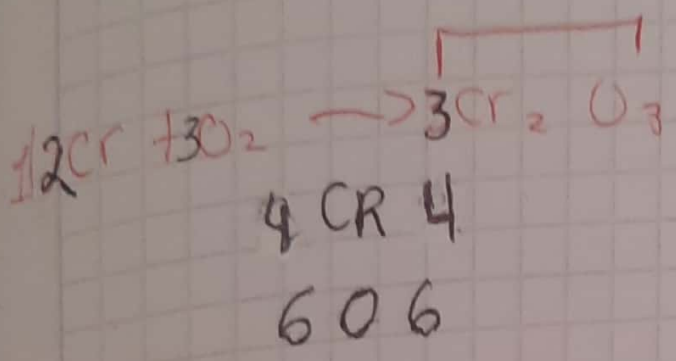 12Cr + 3O₂ → 3Cr₂ O₃
4 CR 4
6 O 6